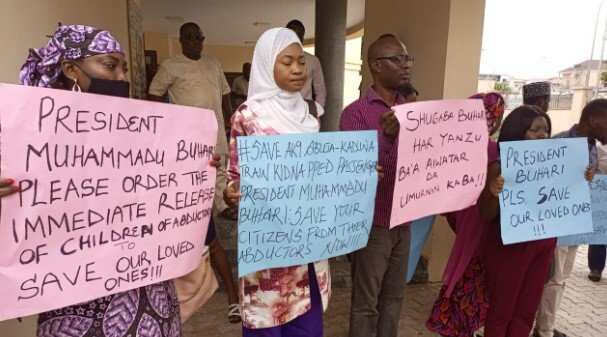 PRESIDENT
MUHAMMADU BUHARI
PLEASE ORDER THE
IMMEDIATE RELEASE
OF CHILDREN OF ABDUCTORS
TO
SAVE OUR LOVED
ONES!!!
#SAVE AK9 ABUJA-KADUNA
TRAIN KIDNAPPED PASSENGER
PRESIDENT MUHAMMADU
BUHARI: SAVE YOUR
CITIZENS FROM THEIR
ABDUCTORS NOW!!!
SHUGABA BUHARI
HAR YANZU
BA'A AIWATAR
DA
UMURNON KA BA!!
PRESIDENT
BUHARI
PLS. SAVE
OUR LOVED ONES
!!!